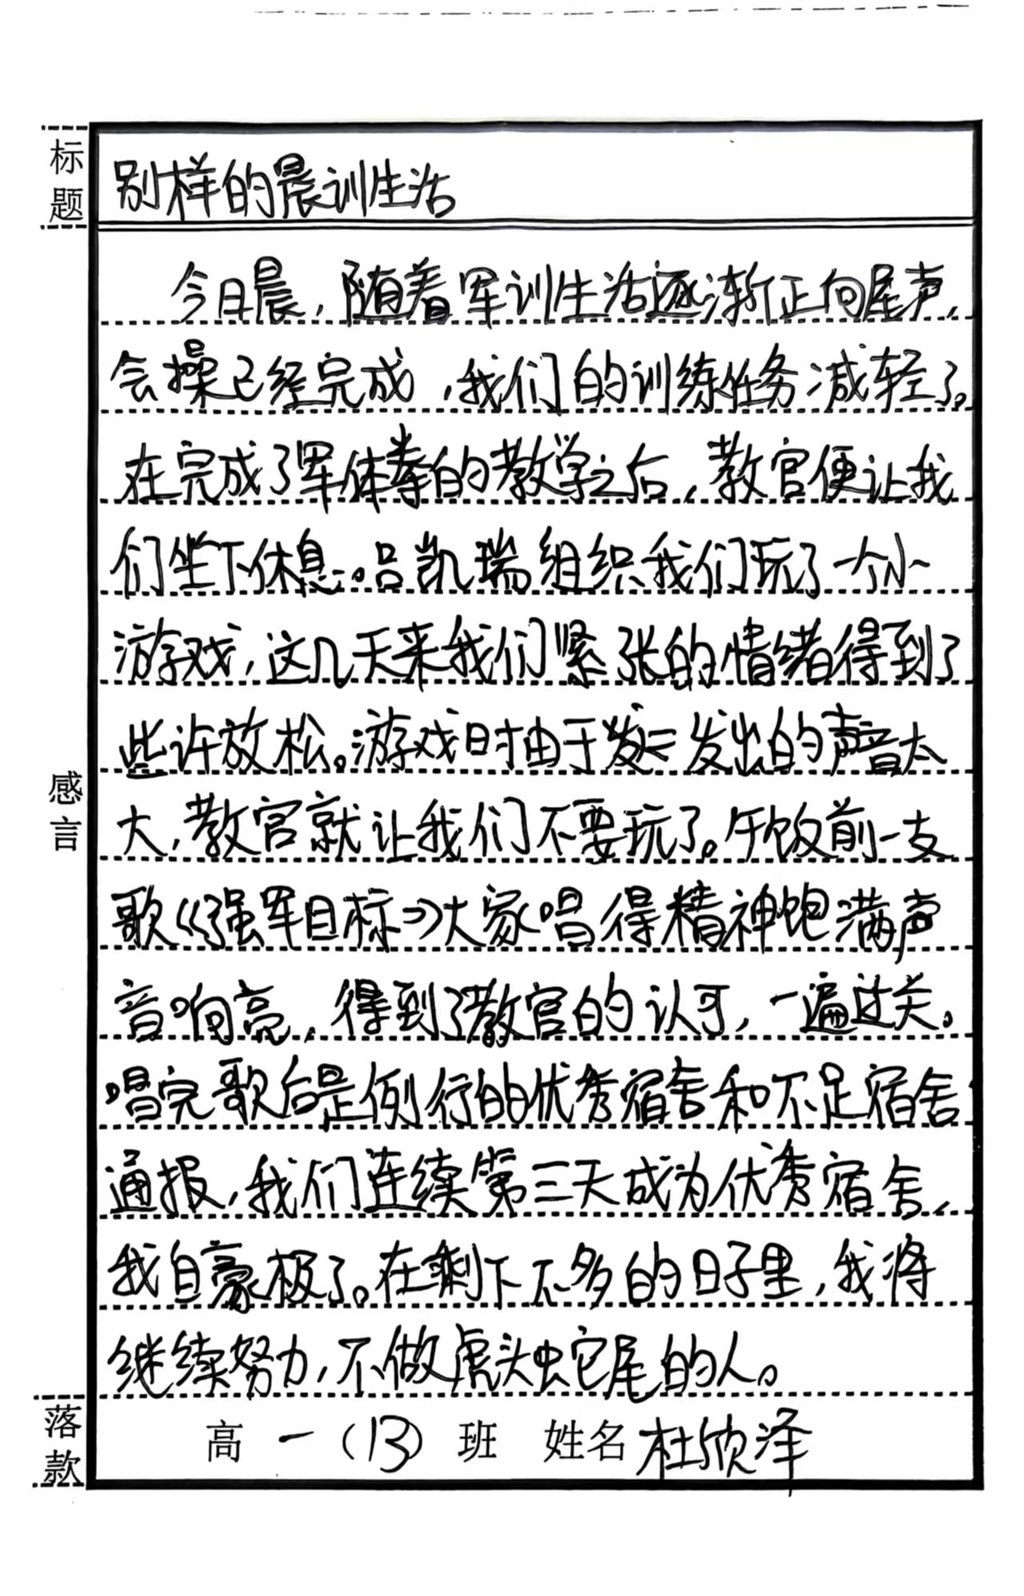 标题
别样的晨训生活
今日晨，随着军训生活逐渐正向尾声，
会操已经完成，我们的训练任务减轻了。
在完成了军体拳的教学之后，教官便让我
们坐下休息。吕凯瑞组织我们玩了一个小
游戏，这几天来我们紧张的情绪得到了
些许放松。游戏时由于发出的声音太
大，教官就让我们不要玩了。午饭前一支
歌《强军目标》大家唱得精神饱满声
音响亮，得到了教官的认可，一遍过关。
唱完歌后是例行的优秀宿舍和不足宿舍
通报，我们连续第三天成为优秀宿舍，
我自豪极了。在剩下不多的日子里，我将
继续努力，不做虎头蛇尾的人。
感言
落款
高一（13）班 姓名 杜欣泽